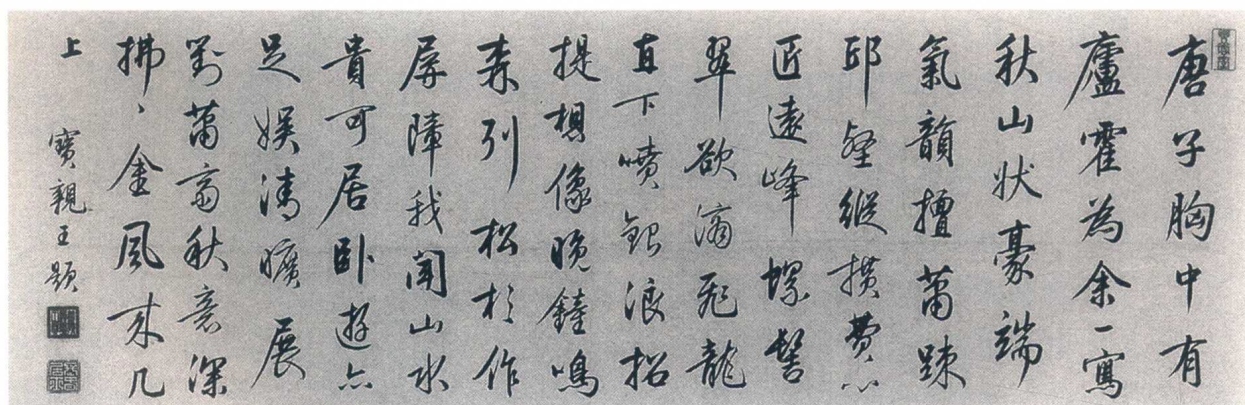 唐子胸中有
廬霍為余一寫
秋山狀豪端
氣韻擅蕭疎
邱壑縱橫費心
匠遠峰螺髻
翠欲滴飛龍
直下噴銀浪招
提想像晚鐘鳴
森列松杉作
屏障我聞山水
貴可居臥遊亦
足娛清曠展
對蕭齋秋意深
拂〻金風來几
上 寶親王題